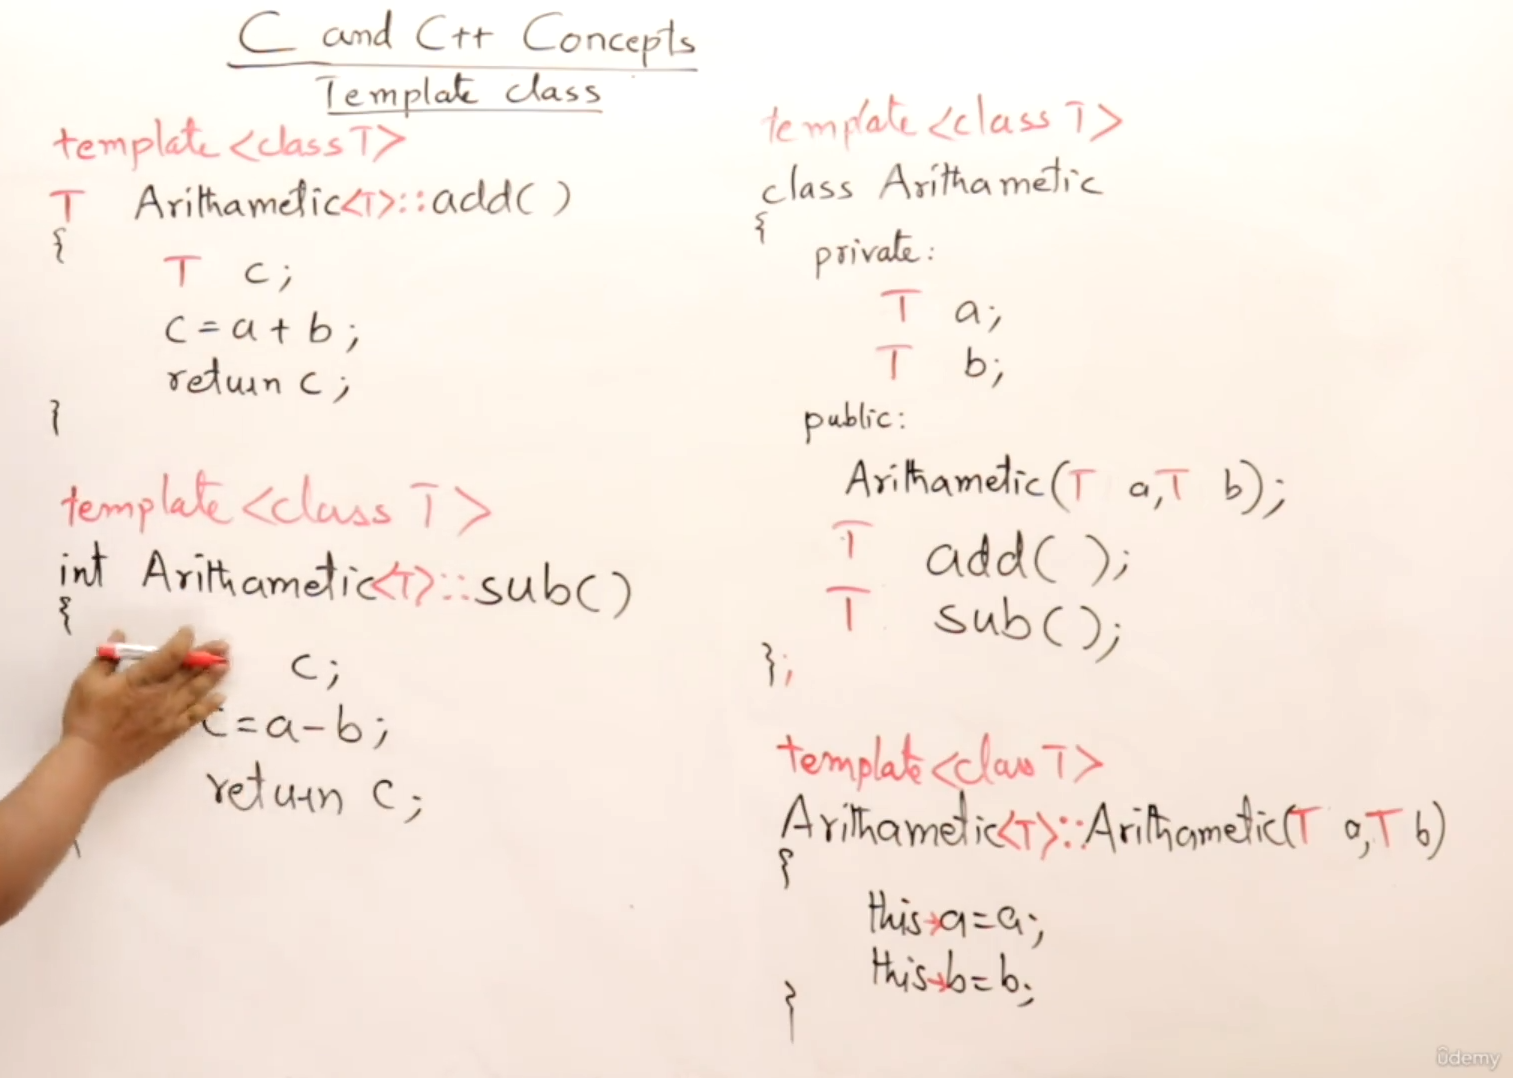 C and C++ Concepts
Template class
template <class T>
T Arithametic<T>::add( )
{
T c;
c = a + b;
return c;
}
template <class T>
int Arithametic<T>::sub()
{
c;
c = a - b;
return c;
template <class T>
class Arithametic
{
private:
T a;
T b;
public:
Arithametic(T a, T b);
T add( );
T sub( );
};
template <class T>
Arithametic<T>::Arithametic(T a, T b)
{
this→a = a;
this→b = b;
}
ûdemy